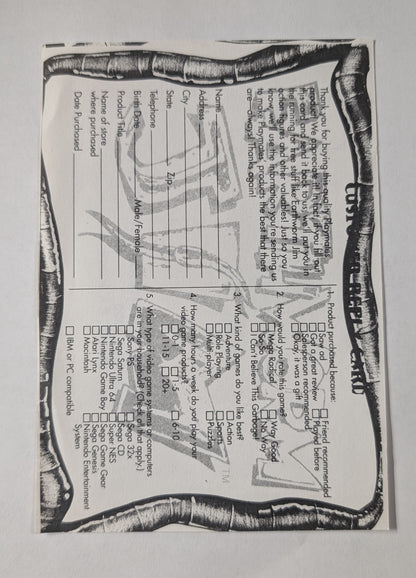 CUSTOMER REPLY CARD
Thank you for buying this quality Playmates
product! We appreciate it! In fact, if you fill out
this card and send it back to us, we'll put you in
the running for free stuff like Earthworm Jim
action figures and other valuables! Just so you
know, we'll use the information you're sending us
to make Playmates products the best that there
are—always! Thanks again!
Name
Address
City
State Zip
Telephone
Birth Date Male/Female
Product Title
Name of store
where purchased
Date Purchased
1. Product purchased because:
Saw ad Friend recommended
Read a great review Played before
Salesperson recommended
Okay, it was a gift
2. How would you rate this game?
Mega Radical Way Good
So-So No Way
I Can't Believe This Garbage!
3. What kind of games do you like best?
Adventure Action
Role Playing Sports
Multi-player Puzzles
4. How many hours a week do you play your
video game products?
0-1 1-5 6-10
11-15 20+
5. What type of video game systems or computers
are in your household? (Check all that apply.)
Sony PS Sega 32X
Sega Saturn Sega CD
Nintendo Ultra 64 Super NES
Nintendo Game Boy Sega Game Gear
Atari Lynx Sega Genesis
Macintosh Nintendo Entertainment
System
IBM or PC compatible
TM